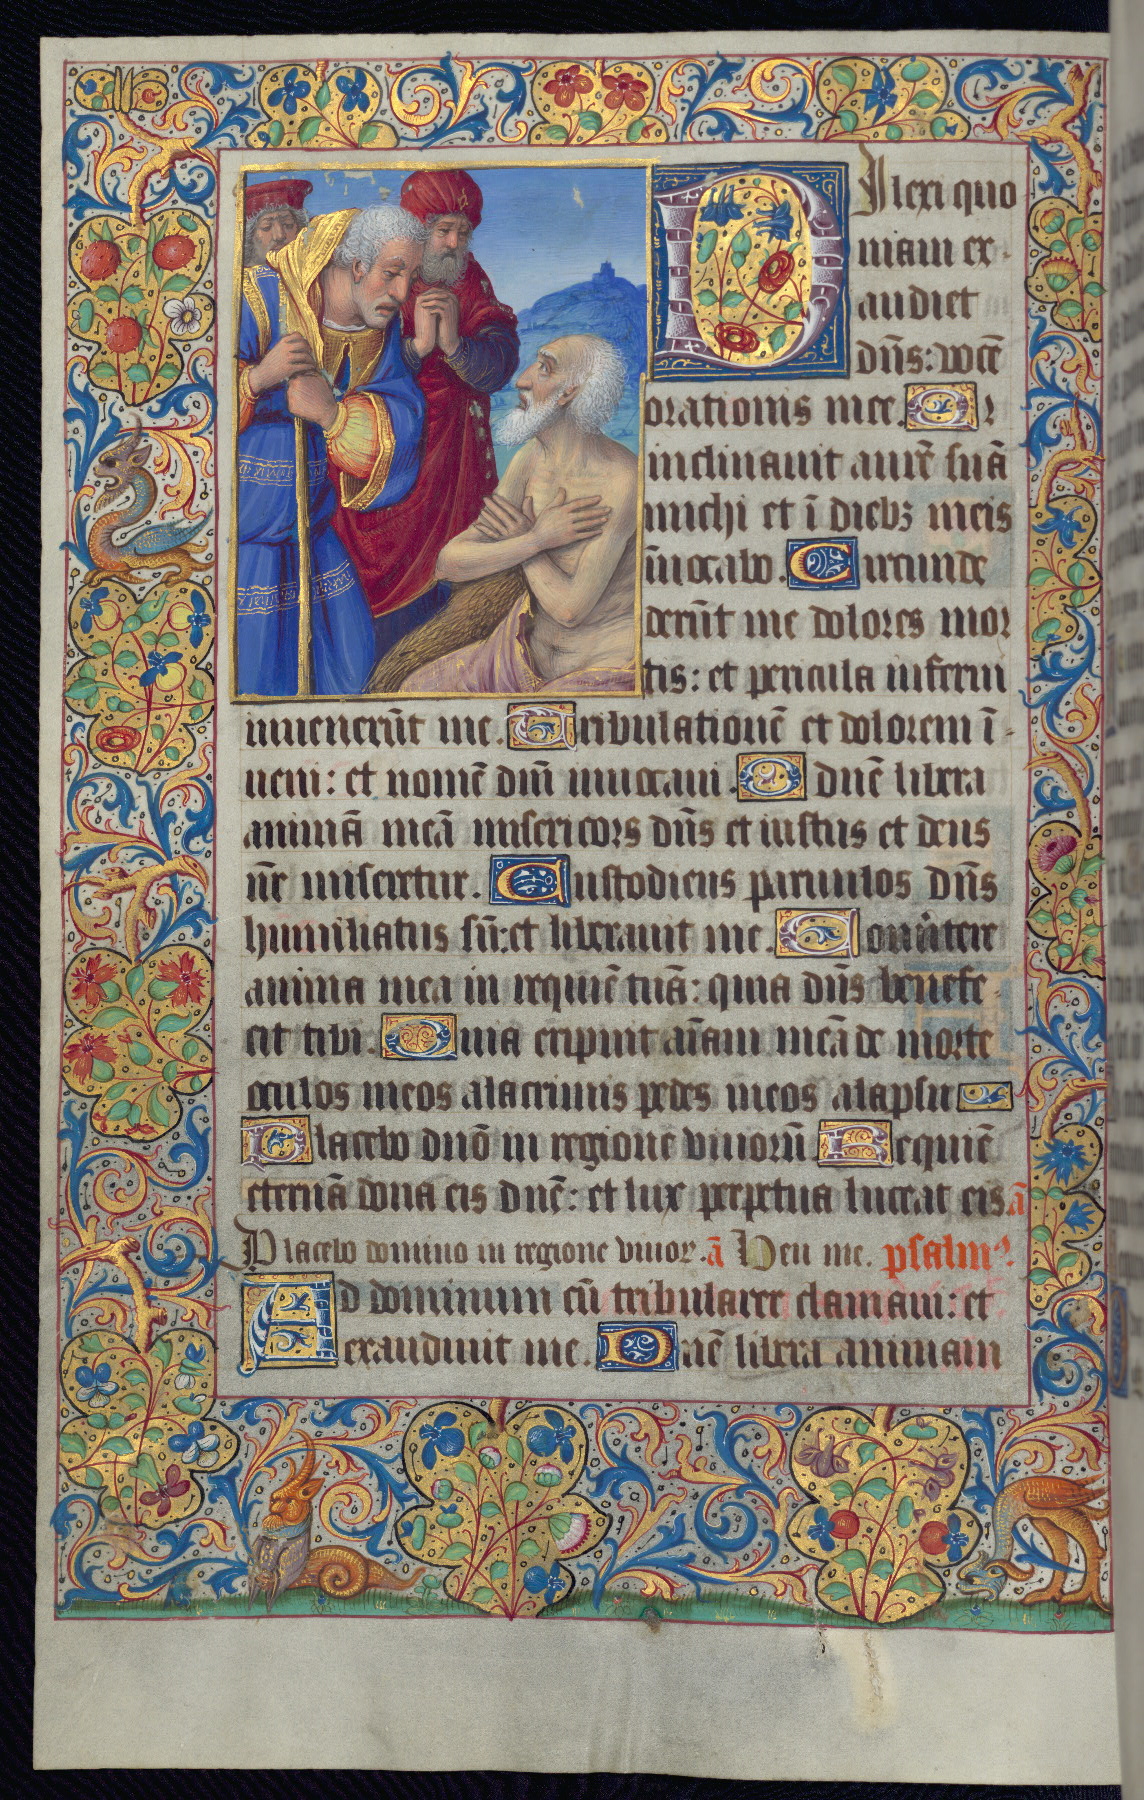 Dilexi quo
niam ex
audiet
dn̄s: vocē
orationis mee. Q r
inclinauit aurē suā
michi et ī diebꝫ meis
īuocabo. Circunde
derūt me dolores mor
tis: et pericula inferni
inuenerūt me. Tribulationē et dolorem ī
ueni: et nomē dn̄i inuocaui. O dn̄e libera
animā meā misericors dn̄s et iustus et deus
nr̄ miseretur. Custodiens paruulos dn̄s
humiliatus sū: et liberauit me. Conuertere
anima mea in requiē tuā: quia dn̄s benefe
cit tibi. Quia eripuit aīam meā de morte
oculos meos a lacrimis pedes meos a lapsu
Placebo dn̄o in regione viuorū Requiē
eternā dona eis dn̄e: et lux perpetua luceat eis. ā
Placebo domino in regione viuoꝝ. ā Heu me. psalmꝰ
Ad dominum cū tribularer clamaui: et
exaudiuit me. Dn̄e libera animam